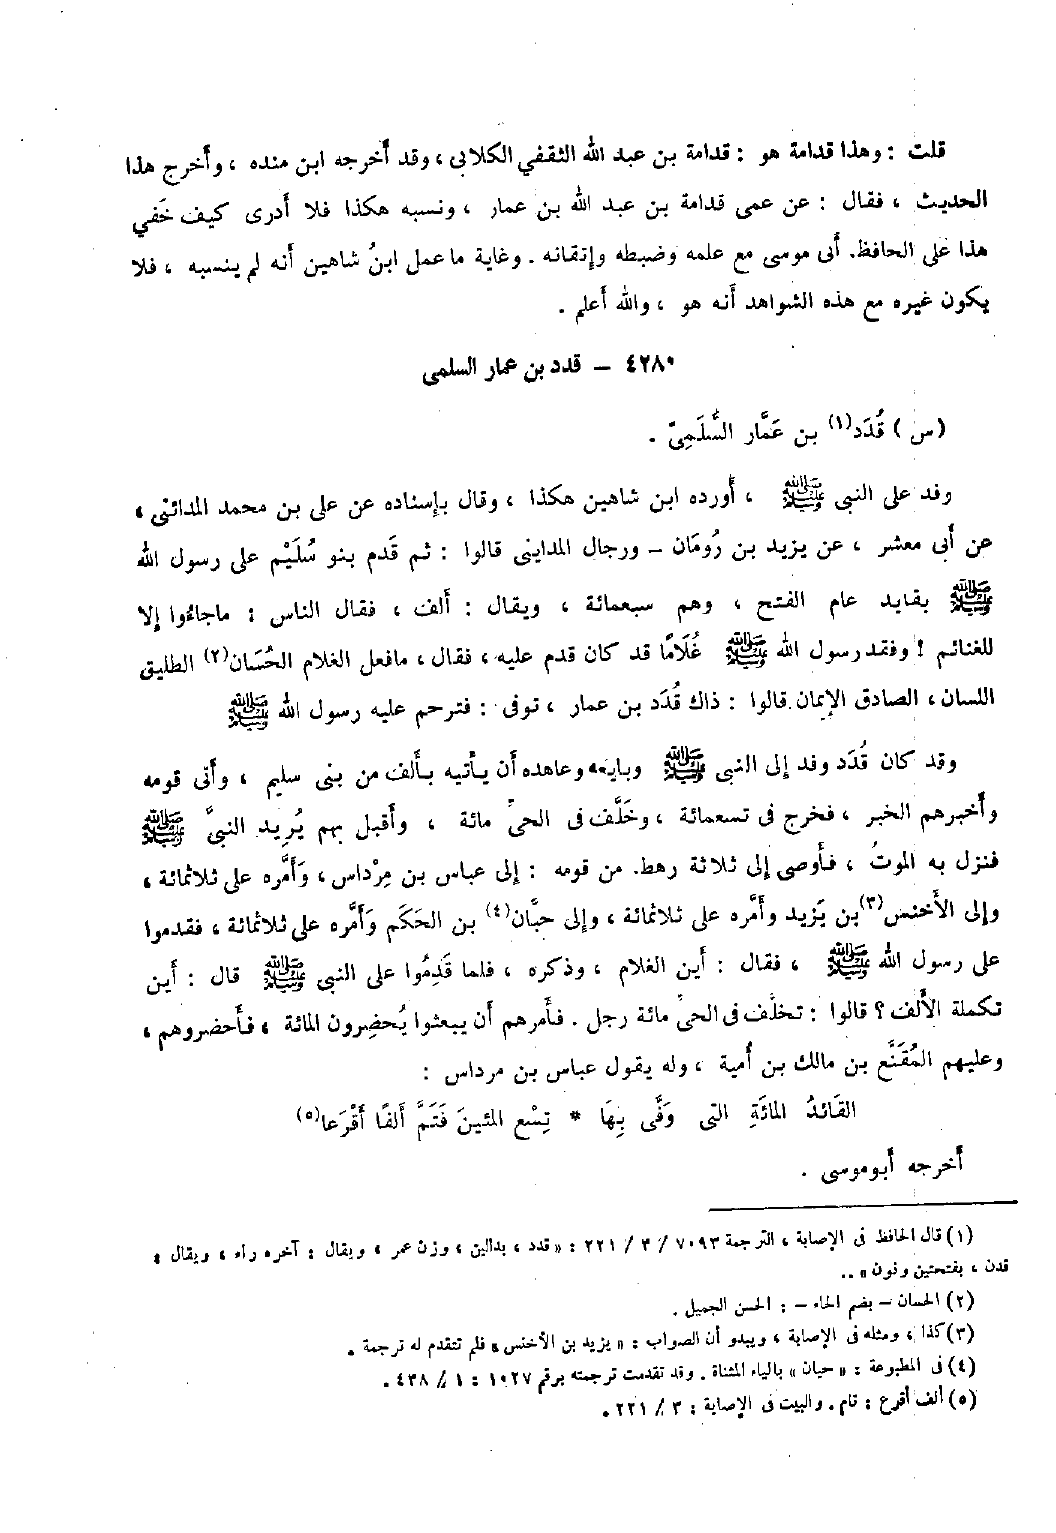 قلت : وهذا قدامة هو : قدامة بن عبد الله الثقفي الكلابى ، وقد أخرجه ابن منده ، وأخرج هذا
الحديث ، فقال : عن عمى قدامة بن عبد الله بن عمار ، ونسبه هكذا فلا أدرى كيف خَفي
هذا على الحافظ. أبى موسى مع علمه وضبطه وإتقانه . وغاية ما عمل ابنُ شاهين أنه لم ينسبه ، فلا
يكون غيره مع هذه الشواهد أنه هو ، والله أعلم .
٤٢٨٠ – قدد بن عمار السلمى
(س) قُدَد(١) بن عَمَّار السُّلَمِىّ .
وفد على النبى ﷺ ، أورده ابن شاهين هكذا ، وقال بإسناده عن على بن محمد المدائنى ،
عن أبى معشر ، عن يزيد بن رُومَان – ورجال المداينى قالوا : ثم قَدم بنو سُلَيْم على رسول الله
ﷺ بقايد عام الفتح ، وهم سبعمائة ، ويقال : ألف ، فقال الناس : ماجاءُوا إلا
للغنائم ! وفقد رسول الله ﷺ غُلَامًا قد كان قدم عليه ، فقال ، مافعل الغلام الحُسَان(٢) الطليق
اللسان ، الصادق الإيمان . قالوا : ذاك قُدَد بن عمار ، توفى : فترحم عليه رسول الله ﷺ
وقد كان قُدَد وفد إلى النبى ﷺ وبايعه وعاهده أن يأتيه بألف من بنى سليم ، وأتى قومه
وأخبرهم الخبر ، فخرج فى تسعمائة ، وخَلَّف فى الحىّ مائة ، وأقبل بهم يُرِيد النبىَّ ﷺ
فنزل به الموتُ ، فأوصى إلى ثلاثة رهط. من قومه : إلى عباس بن مِرْداس ، وَأَمَّره على ثلاثمائة ،
وإلى الأَخنس(٣) بن يَزيد وأَمَّره على ثلاثمائة ، وإلى حبَّان(٤) بن الحَكَم وَأَمَّره على ثلاثمائة ، فقدموا
على رسول الله ﷺ ، فقال : أين الغلام ، وذكره ، فلما قَدِمُوا على النبى ﷺ قال : أين
تكملة الأَلف ؟ قالوا : تخلَّف فى الحىّ مائة رجل . فأمرهم أن يبعثوا يُحضِرون المائة ، فأحضروهم ،
وعليهم المُقَنَّع بن مالك بن أُمية ، وله يقول عباس بن مرداس :
القَائدُ المائَةِ التى وَفَّى بِهَا * تِسْع المئينَ فَتَمَّ أَلفًا أَقْرَعا(٥)
أخرجه أبوموسى .
(١) قال الحافظ فى الإصابة ، الترجمة ٧٠٩٣ / ٣ / ٢٢١ : « قدد ، بدالين ، وزن عمر ، ويقال : آخره راء ، ويقال :
قدن ، بفتحتين ونون » ..
(٢) الحسان – بضم الحاء – : الحسن الجميل .
(٣) كذا ، ومثله فى الإصابة ، ويبدو أن الصواب : « يزيد بن الأخنس » فلم تتقدم له ترجمة .
(٤) فى المطبوعة : « حيان » بالياء المثناة . وقد تقدمت ترجمته برقم ١٠٢٧ : ١ / ٤٣٨ .
(٥) ألف أقرع : تام . والبيت فى الإصابة : ٣ / ٢٢١ .